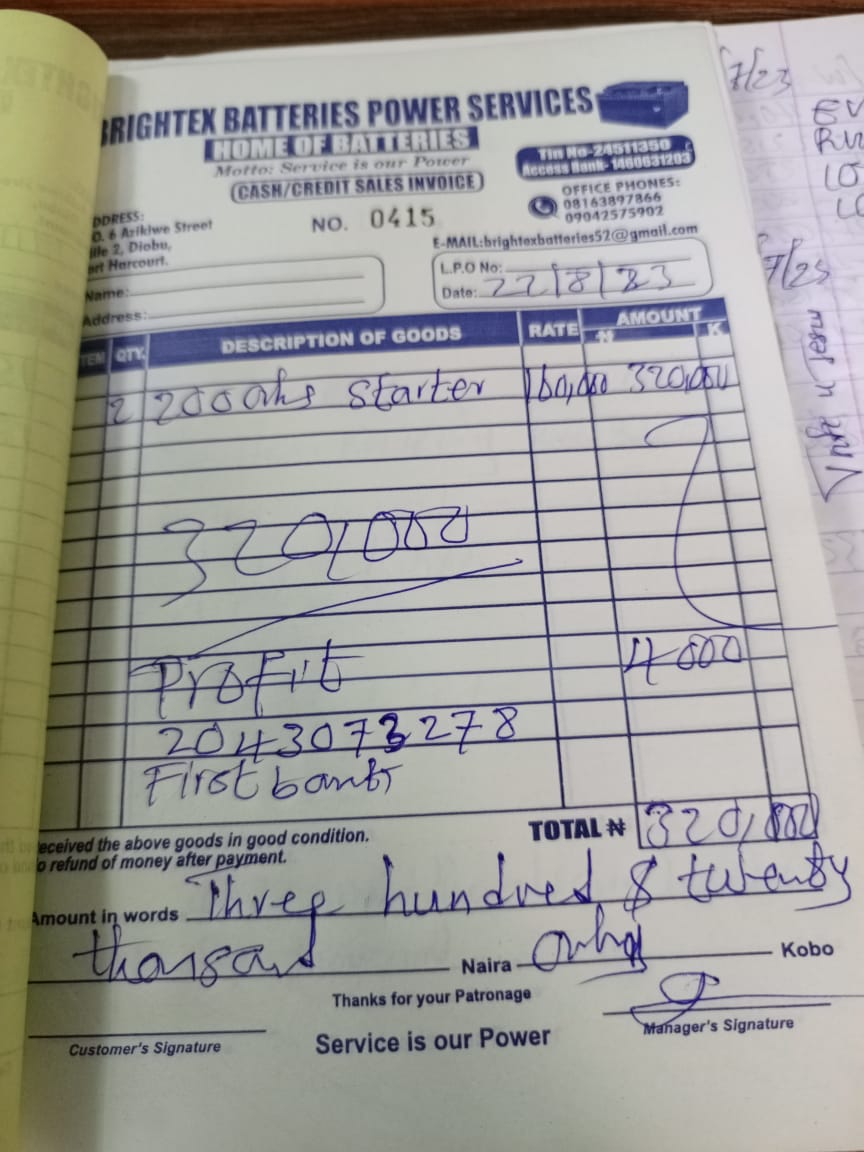 BRIGHTEX BATTERIES POWER SERVICES
HOME OF BATTERIES
Motto: Service is our Power
CASH/CREDIT SALES INVOICE
Tin No-24511350
Access Bank- 1460631203
OFFICE PHONES:
08163897866
09042575902
DDRESS:
O. 6 Azikiwe Street
ile 2, Diobu,
ort Harcourt.
NO. 0415
E-MAIL:brightexbatteries52@gmail.com
Name:
Address:
L.P.O No:
Date: 22/8/23
TEM QTY. DESCRIPTION OF GOODS RATE AMOUNT
₦ K
2 200ahs Starter 160,000 320,000
320,000
Profit 4000
2043073278
First bank
TOTAL ₦ 320,000
eceived the above goods in good condition.
o refund of money after payment.
Amount in words Three hundred & twenty
thousand Naira only Kobo
Thanks for your Patronage
Customer's Signature Service is our Power Manager's Signature
7/23
7/23